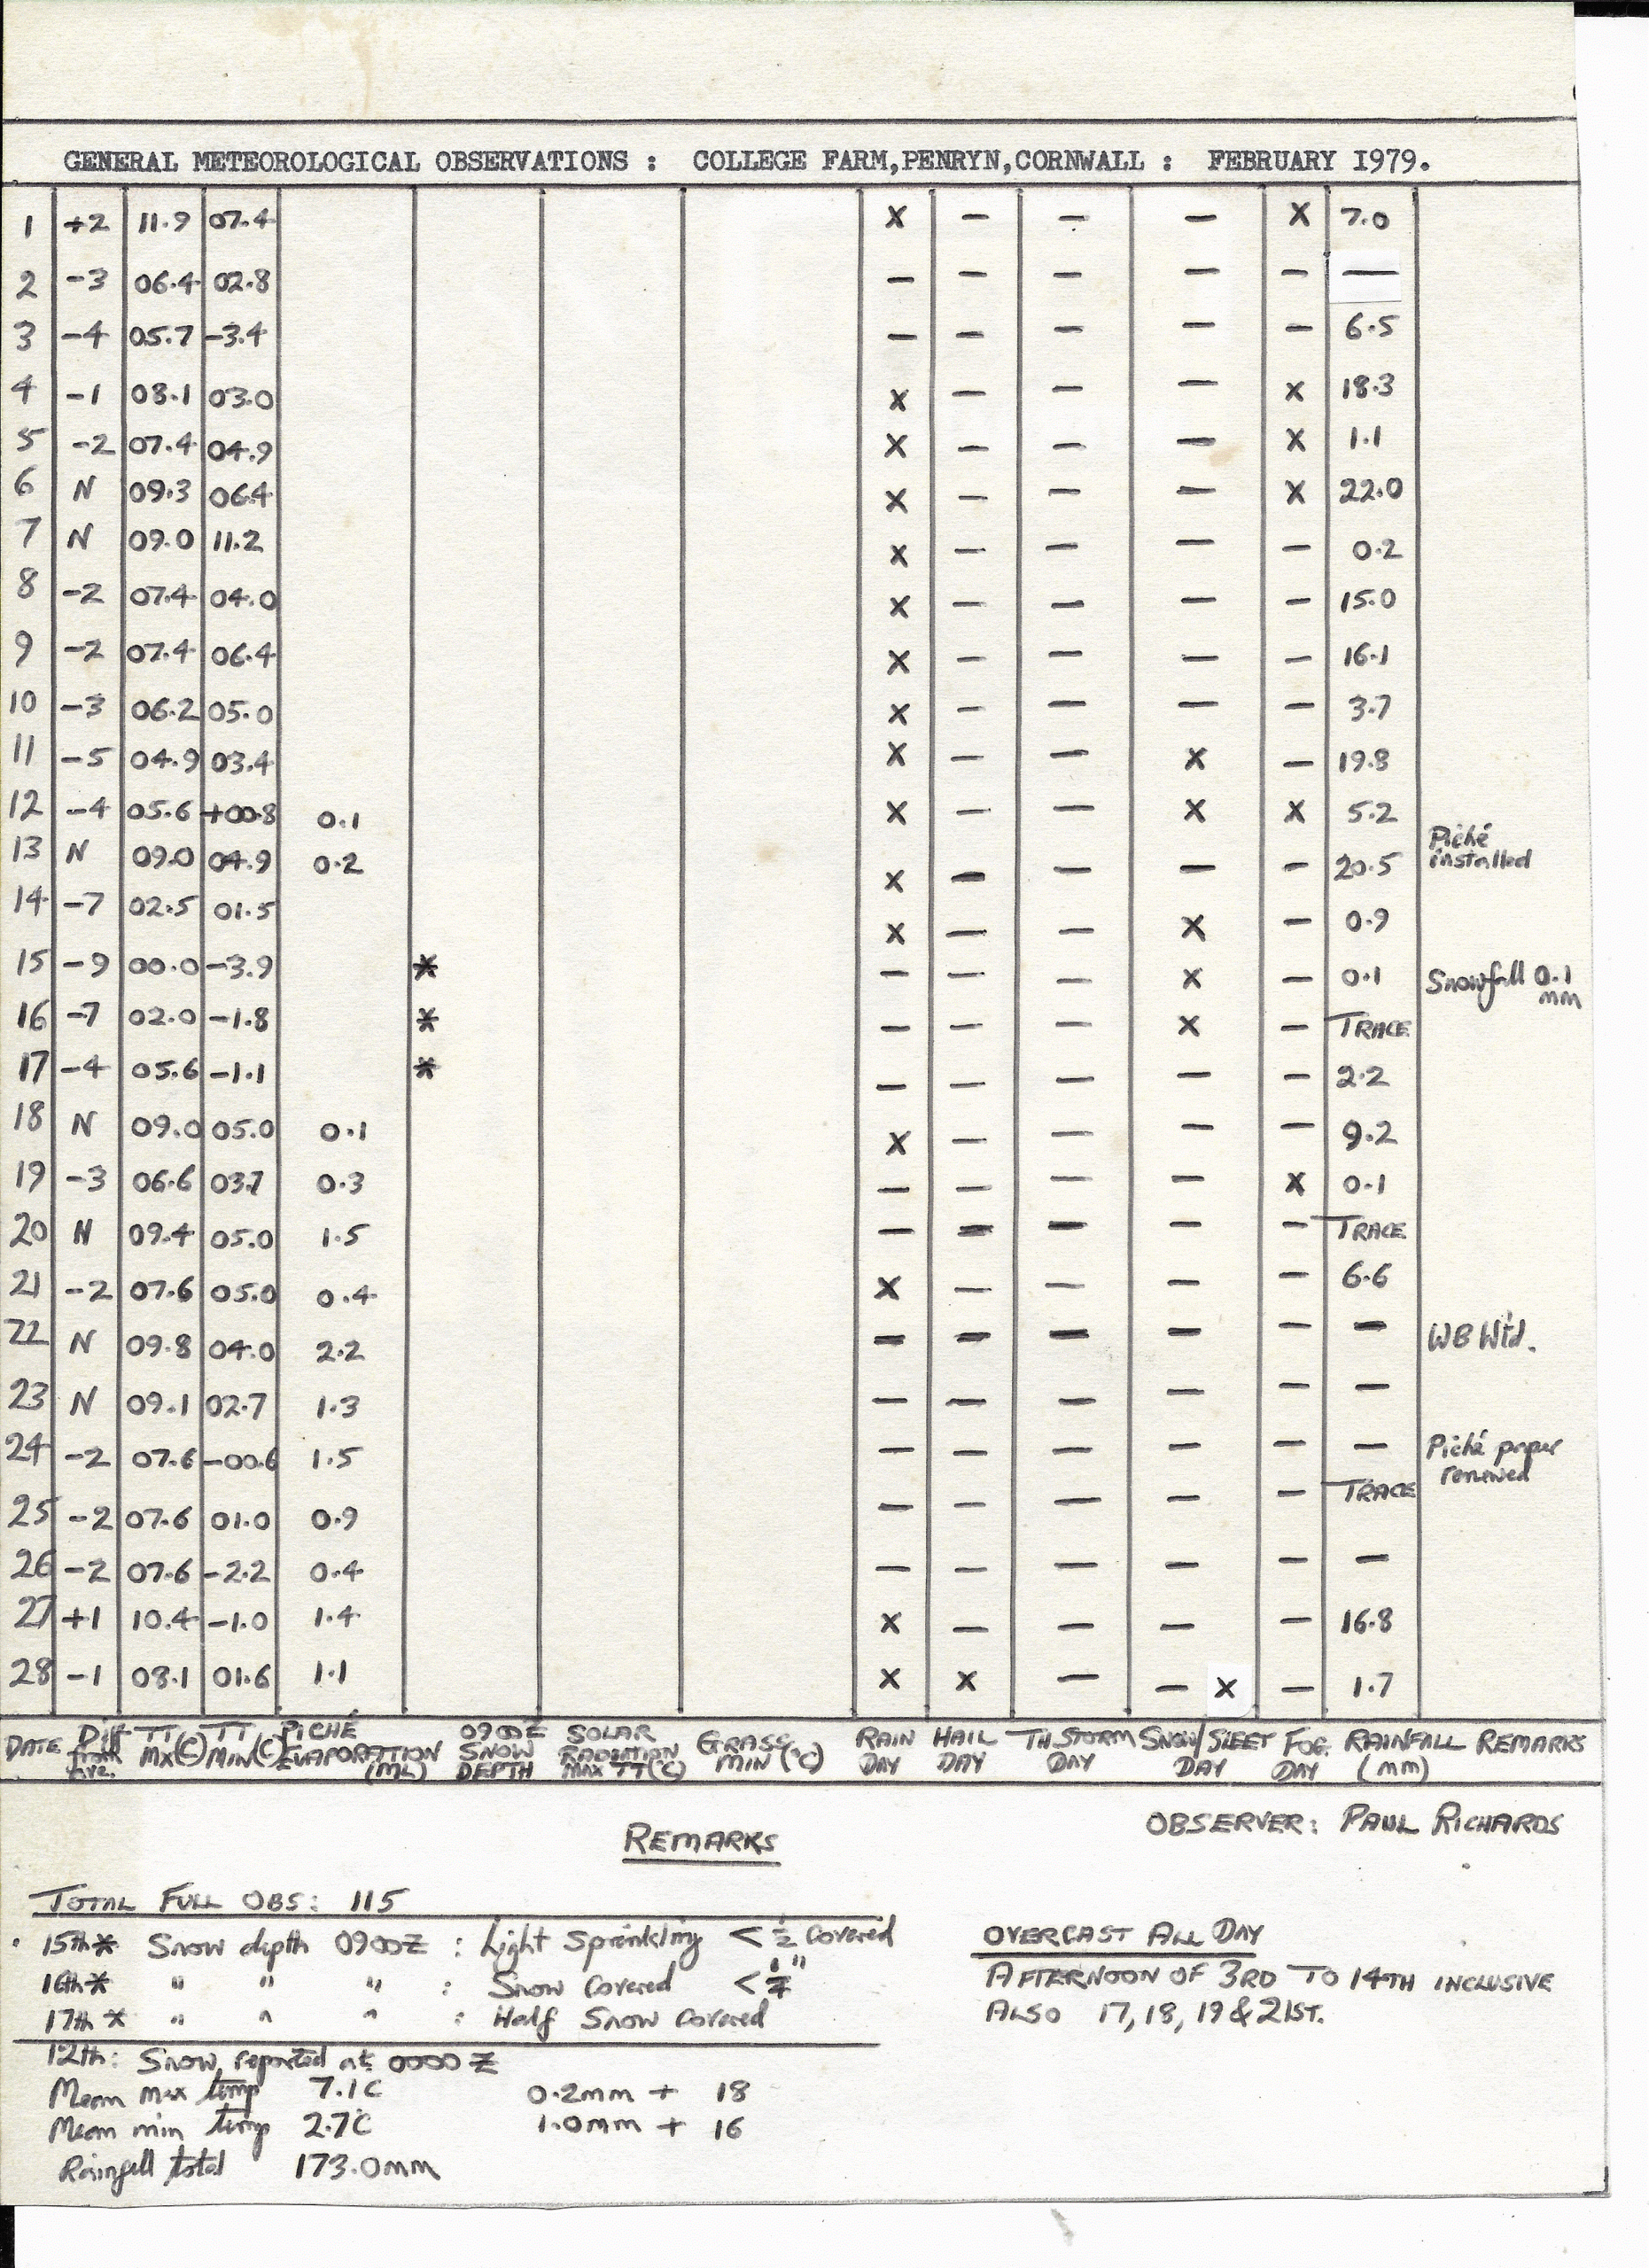 GENERAL METEOROLOGICAL OBSERVATIONS : COLLEGE FARM,PENRYN,CORNWALL : FEBRUARY I979.
1 +2 11.9 07.4 X — — — X 7.0
2 -3 06.4 02.8 — — — — — —
3 -4 05.7 -3.4 — — — — — 6.5
4 -1 08.1 03.0 X — — — X 18.3
5 -2 07.4 04.9 X — — — X 1.1
6 N 09.3 06.4 X — — — X 22.0
7 N 09.0 11.2 X — — — — 0.2
8 -2 07.4 04.0 X — — — — 15.0
9 -2 07.4 06.4 X — — — — 16.1
10 -3 06.2 05.0 X — — — — 3.7
11 -5 04.9 03.4 X — — X — 19.8
12 -4 05.6 +00.8 0.1 X — — X X 5.2
13 N 09.0 04.9 0.2 X — — — — 20.5 Piché installed
14 -7 02.5 01.5 X — — X — 0.9
15 -9 00.0 -3.9 * — — — X — 0.1 Snowfall 0.1 mm
16 -7 02.0 -1.8 * — — — X — TRACE
17 -4 05.6 -1.1 * — — — — — 2.2
18 N 09.0 05.0 0.1 X — — — — 9.2
19 -3 06.6 03.7 0.3 — — — — X 0.1
20 N 09.4 05.0 1.5 — — — — — TRACE
21 -2 07.6 05.0 0.4 X — — — — 6.6
22 N 09.8 04.0 2.2 — — — — — — WB Wtd.
23 N 09.1 02.7 1.3 — — — — — —
24 -2 07.6 -00.6 1.5 — — — — — — Piché paper renewed
25 -2 07.6 01.0 0.9 — — — — — TRACE
26 -2 07.6 -2.2 0.4 — — — — — —
27 +1 10.4 -1.0 1.4 X — — — — 16.8
28 -1 08.1 01.6 1.1 X X — — X — 1.7
DATE Diff from Ave. TT MX(C) TT MIN(C) PICHÉ EVAPORATION (ML) 0900Z SNOW DEPTH SOLAR RADIATION MAX TT(°C) GRASS MIN (°C) RAIN DAY HAIL DAY TH.STORM DAY SNOW/SLEET DAY FOG DAY RAINFALL (mm) REMARKS
OBSERVER: PAUL RICHARDS
REMARKS
TOTAL FULL OBS: 115
15th* Snow depth 0900Z : Light Sprinkling < ½ covered
16th* " " " : Snow Covered <
17th* " " " : Half Snow Covered
12th: Snow, reported at 0000Z
Mean max temp 7.1C 0.2mm + 18
Mean min temp 2.7C 1.0mm + 16
Rainfall total 173.0mm
OVERCAST ALL DAY
AFTERNOON OF 3RD TO 14TH INCLUSIVE
ALSO 17, 18, 19 & 21ST.